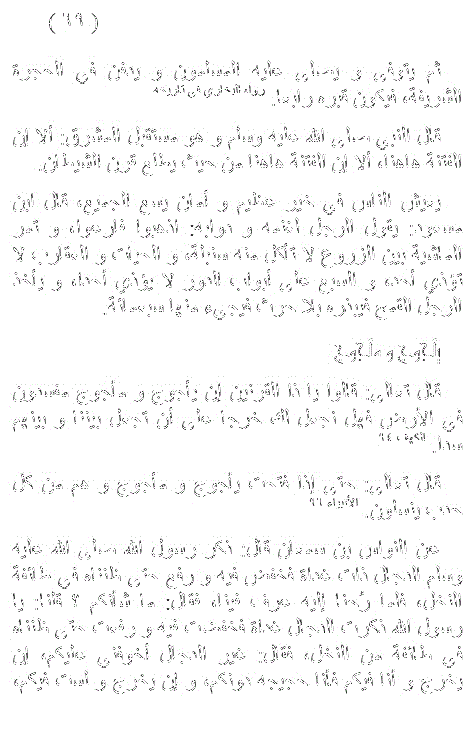 ( ٦٩ )
ثم يتوفى و يصلي عليه المسلمون و يدفن في الحجرة
الشريفة، فيكون قبره رابعا.
قال النبي صلى الله عليه وسلم و هو مستقبل المشرق: ألا إن
الفتنة هاهنا، ألا إن الفتنة هاهنا من حيث يطلع قرن الشيطان.
يعيش الناس في خير عظيم و أمان يسع الجميع، قال ابن
مسعود: يقول الرجل لغنمه و دوابه: اذهبوا فارعوا، و تمر
الماشية بين الزروع لا تأكل منه سنبلة، و الحيات و العقارب لا
تؤذي أحدا، و السبع على أبواب الدور لا يؤذي أحدا، و يأخذ
الرجل القمح فيبذره بلا حرث فيجيء منها سبعمائة.
يأجوج و مأجوج
قال تعالى: قالوا يا ذا القرنين إن يأجوج و مأجوج مفسدون
في الأرض فهل نجعل لك خرجا على أن تجعل بيننا و بينهم
سدا. الكهف
قال تعالى: حتى إذا فتحت يأجوج و مأجوج و هم من كل
حدب ينسلون. الأنبياء ٩٦
عن النواس بن سمعان قال: ذكر رسول الله صلى الله عليه
وسلم الدجال ذات غداة فخفض فيه و رفع حتى ظنناه في طائفة
النخل، فلما رحنا إليه عرف فينا، فقال: ما شأنكم ؟ قلنا: يا
رسول الله ذكرت الدجال غداة فخفضت فيه و رفعت حتى ظنناه
في طائفة من النخل، فقال: غير الدجال أخوفني عليكم، إن
يخرج و أنا فيكم فأنا حجيجه دونكم، و إن يخرج و لست فيكم،